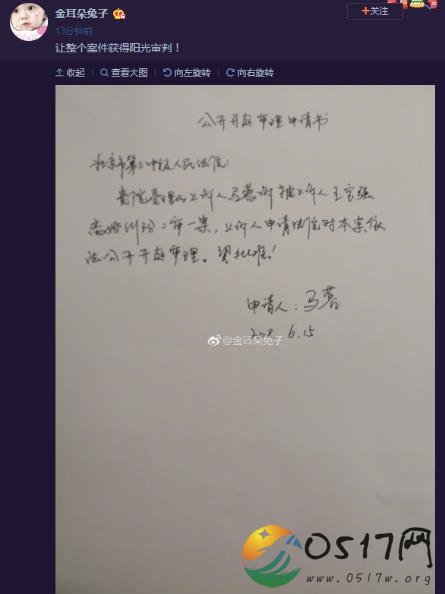 金耳朵兔子
+关注
13分钟前
让整个案件获得阳光审判！
收起 查看大图 向左旋转 向右旋转
公开开庭审理申请书
北京市第三中级人民法院：
贵院受理的上诉人马蓉诉被上诉人王宝强
离婚纠纷二审一案，上诉人申请法院对本案依
法公开开庭审理。望批准！
申请人：马蓉
2018.6.15
@金耳朵兔子
0517网
www.0517w.org